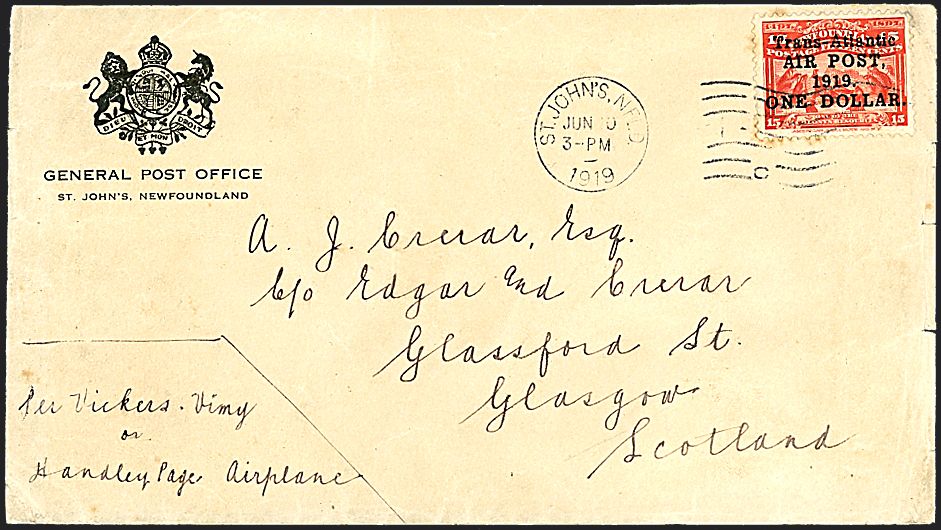 1497. 1897.
15 15
POSTAGE CENTS
Trans-Atlantic
AIR POST,
1919.
ONE DOLLAR.
15 15
ST. JOHN'S, NFLD.
JUN 10
3-PM
1919
DIEU ET MON DROIT
GENERAL POST OFFICE
ST. JOHN'S, NEWFOUNDLAND
A. J. Crerar, Esq.
c/o Edgar and Crerar
Glassford St.
Glasgow
Scotland
Per Vickers. Vimy
or
Handley Page Airplane